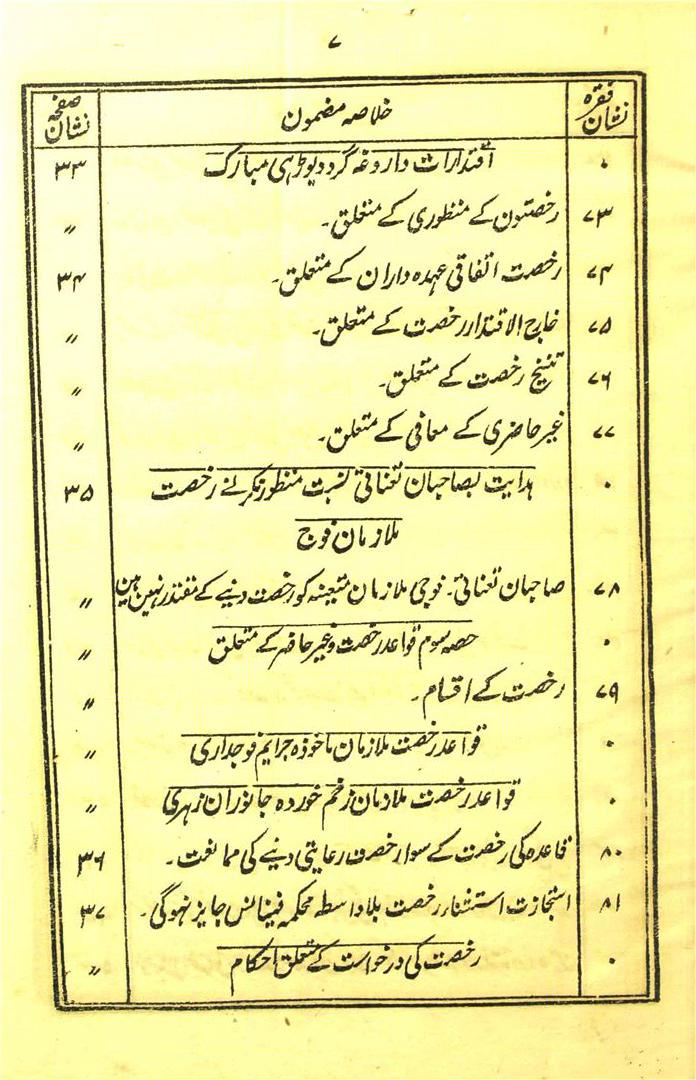 ۷
نشان فقرہ خلاصہ مضمون نشان صفحہ
۰ اقتدارات داروغہ گرد دیوڑہی مبارک ۳۳
۷۳ رخصتون کے منظوری کے متعلق۔ 〃
۷۴ رخصت اتفاقی عہدہ داران کے متعلق۔ ۳۴
۷۵ خارج الاقتدار رخصت کے متعلق۔ 〃
۷۶ تنسیخ رخصت کے متعلق۔ 〃
۷۷ غیر حاضری کے معافی کے متعلق۔ 〃
۰ ہدایت بصاحبان تعناتی نسبت منظور نکرنے رخصت ۳۵
ملازمان فوج
۷۸ صاحبان تعناتی۔ فوجی ملازمان متعینہ کو رخصت دینے کے مقتدر نہین ہین 〃
۰ حصہ سوم قواعد رخصت و غیر حاضر کے متعلق 〃
۷۹ رخصت کے اقسام۔ 〃
۰ قواعد رخصت ملازمان ماخوذہ جرایم فوجداری 〃
۰ قواعد رخصت ملازمان زخم خوردہ جانوران زہری 〃
۸۰ قاعدہ کی رخصت کے سوا رخصت رعایتی دینے کی ممانعت۔ ۳۶
۸۱ استجازت استثناء رخصت بلا واسطہ محکمہ فینانس جایز نہوگی۔ ۳۷
۰ رخصت کی درخواست کے متعلق احکام 〃